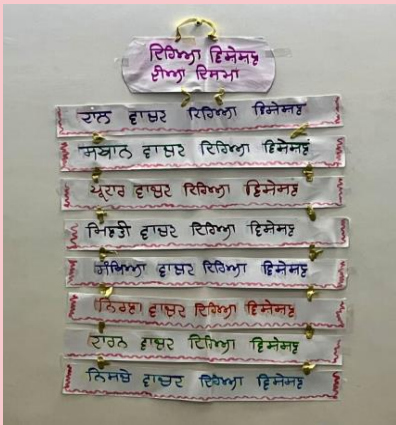 ਕਿਰਿਆ ਵਿਸ਼ੇਸ਼ਣ
ਦੀਆਂ ਕਿਸਮਾਂ
ਕਾਲ ਵਾਚਕ ਕਿਰਿਆ ਵਿਸ਼ੇਸ਼ਣ
ਸਥਾਨ ਵਾਚਕ ਕਿਰਿਆ ਵਿਸ਼ੇਸ਼ਣ
ਪ੍ਰਕਾਰ ਵਾਚਕ ਕਿਰਿਆ ਵਿਸ਼ੇਸ਼ਣ
ਮਿਣਤੀ ਵਾਚਕ ਕਿਰਿਆ ਵਿਸ਼ੇਸ਼ਣ
ਸੰਖਿਆ ਵਾਚਕ ਕਿਰਿਆ ਵਿਸ਼ੇਸ਼ਣ
ਨਿਰਣਾ ਵਾਚਕ ਕਿਰਿਆ ਵਿਸ਼ੇਸ਼ਣ
ਕਾਰਨ ਵਾਚਕ ਕਿਰਿਆ ਵਿਸ਼ੇਸ਼ਣ
ਨਿਸਚੇ ਵਾਚਕ ਕਿਰਿਆ ਵਿਸ਼ੇਸ਼ਣ